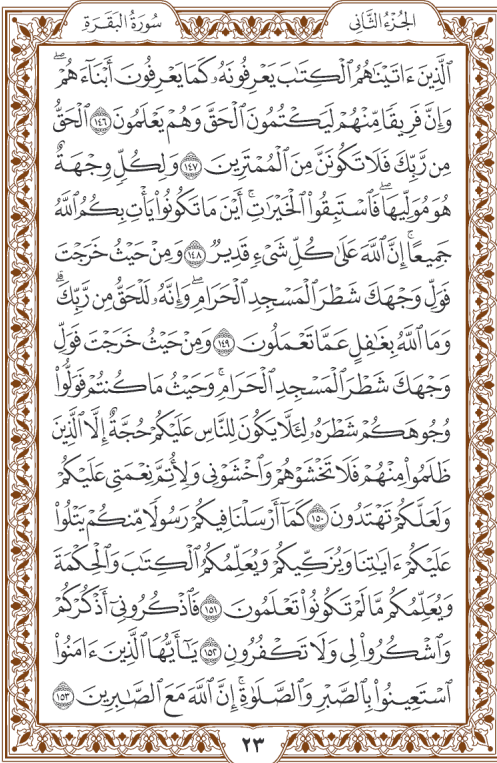 الجُزْءُ الثَّانِي
سُورَةُ البَقَرَةِ
ٱلَّذِينَ ءَاتَيْنَٰهُمُ ٱلْكِتَٰبَ يَعْرِفُونَهُۥ كَمَا يَعْرِفُونَ أَبْنَآءَهُمْۖ
وَإِنَّ فَرِيقٗا مِّنْهُمْ لَيَكْتُمُونَ ٱلْحَقَّ وَهُمْ يَعْلَمُونَ ١٤٦ ٱلْحَقُّ
مِن رَّبِّكَ فَلَا تَكُونَنَّ مِنَ ٱلْمُمْتَرِينَ ١٤٧ وَلِكُلّٖ وِجْهَةٌ
هُوَ مُوَلِّيهَاۖ فَٱسْتَبِقُوا۟ ٱلْخَيْرَٰتِۚ أَيْنَ مَا تَكُونُوا۟ يَأْتِ بِكُمُ ٱللَّهُ
جَمِيعًاۚ إِنَّ ٱللَّهَ عَلَىٰ كُلِّ شَىْءٖ قَدِيرٞ ١٤٨ وَمِنْ حَيْثُ خَرَجْتَ
فَوَلِّ وَجْهَكَ شَطْرَ ٱلْمَسْجِدِ ٱلْحَرَامِۖ وَإِنَّهُۥ لَلْحَقُّ مِن رَّبِّكَۗ
وَمَا ٱللَّهُ بِغَٰفِلٍ عَمَّا تَعْمَلُونَ ١٤٩ وَمِنْ حَيْثُ خَرَجْتَ فَوَلِّ
وَجْهَكَ شَطْرَ ٱلْمَسْجِدِ ٱلْحَرَامِۚ وَحَيْثُ مَا كُنتُمْ فَوَلُّوا۟
وُجُوهَكُمْ شَطْرَهُۥ لِئَلَّا يَكُونَ لِلنَّاسِ عَلَيْكُمْ حُجَّةٌ إِلَّا ٱلَّذِينَ
ظَلَمُوا۟ مِنْهُمْ فَلَا تَخْشَوْهُمْ وَٱخْشَوْنِى وَلِأُتِمَّ نِعْمَتِى عَلَيْكُمْ
وَلَعَلَّكُمْ تَهْتَدُونَ ١٥٠ كَمَآ أَرْسَلْنَا فِيكُمْ رَسُولٗا مِّنكُمْ يَتْلُوا۟
عَلَيْكُمْ ءَايَٰتِنَا وَيُزَكِّيكُمْ وَيُعَلِّمُكُمُ ٱلْكِتَٰبَ وَٱلْحِكْمَةَ
وَيُعَلِّمُكُم مَّا لَمْ تَكُونُوا۟ تَعْلَمُونَ ١٥١ فَٱذْكُرُونِىٓ أَذْكُرْكُمْ
وَٱشْكُرُوا۟ لِى وَلَا تَكْفُرُونِ ١٥٢ يَٰٓأَيُّهَا ٱلَّذِينَ ءَامَنُوا۟
ٱسْتَعِينُوا۟ بِٱلصَّبْرِ وَٱلصَّلَوٰةِۚ إِنَّ ٱللَّهَ مَعَ ٱلصَّٰبِرِينَ ١٥٣
٢٣